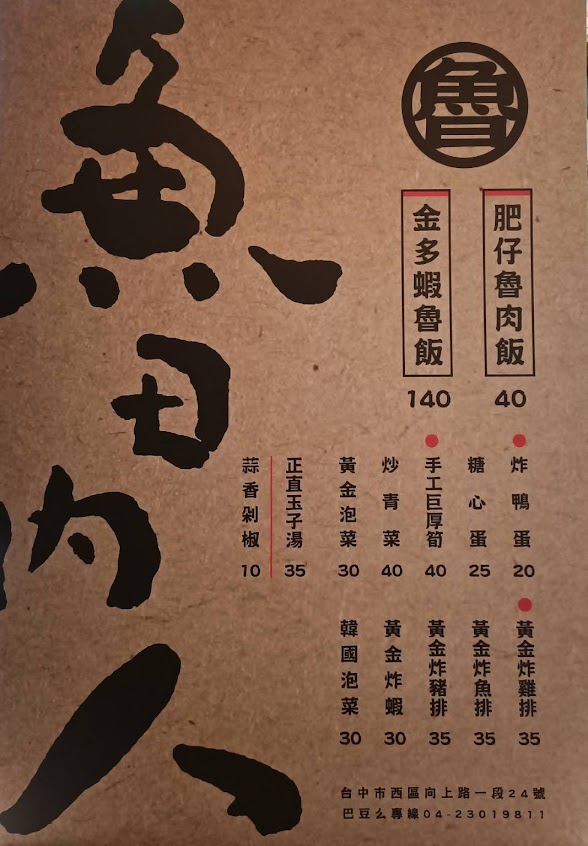 魯
肥仔魯肉飯
40
金多蝦魯飯
140
炸鴨蛋
20
糖心蛋
25
手工巨厚筍
40
炒青菜
40
黃金泡菜
30
正直玉子湯
35
蒜香剁椒
10
黃金炸雞排
35
黃金炸魚排
35
黃金炸豬排
35
黃金炸蝦
30
韓國泡菜
30
台中市西區向上路一段24號
巴豆么專線04-23019811
魚田肉人